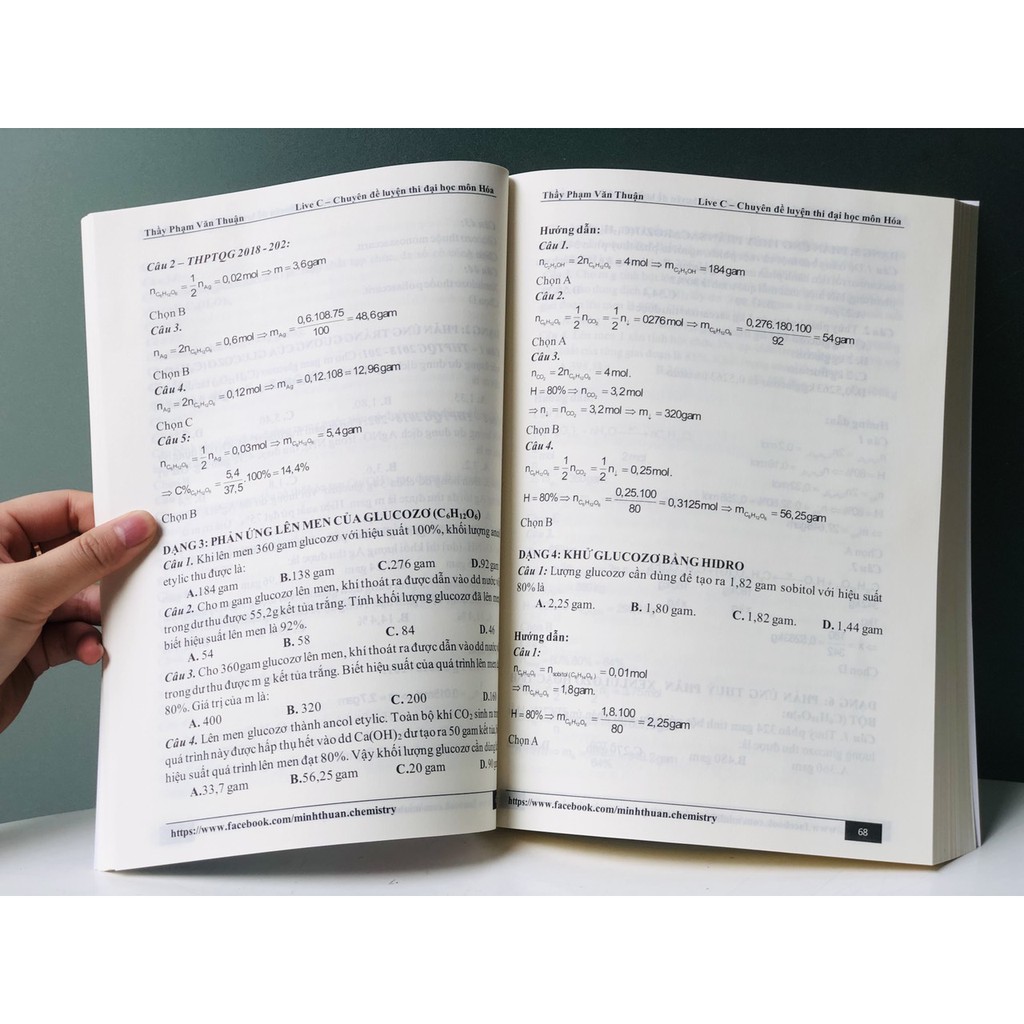 Thầy Phạm Văn Thuận Live C – Chuyên đề luyện thi đại học môn Hóa
Câu 2 – THPTQG 2018 -202:
n_{C₆H₁₂O₆} = 1/2 n_{Ag} = 0,02mol ⇒ m = 3,6gam
Chọn B
Câu 3.
n_{Ag} = 2n_{C₆H₁₂O₆} = 0,6mol ⇒ m_{Ag} = 0,6.108.75/100 = 48,6gam
Chọn B
Câu 4.
n_{Ag} = 2n_{C₆H₁₂O₆} = 0,12mol ⇒ m_{Ag} = 0,12.108 = 12,96gam
Chọn C
Câu 5:
n_{C₆H₁₂O₆} = 1/2 n_{Ag} = 0,03mol ⇒ m_{C₆H₁₂O₆} = 5,4gam
⇒ C%_{C₆H₁₂O₆} = 5,4/37,5 .100% = 14,4%
Chọn B
DẠNG 3: PHẢN ỨNG LÊN MEN CỦA GLUCOZƠ (C₆H₁₂O₆)
Câu 1. Khi lên men 360 gam glucozơ với hiệu suất 100%, khối lượng
etylic thu được là:
A.184 gam B.138 gam C.276 gam D.92
Câu 2. Cho m gam glucozơ lên men, khí thoát ra được dẫn vào dd nước
trong dư thu được 55,2g kết tủa trắng. Tính khối lượng glucozơ đã lên
biết hiệu suất lên men là 92%.
A. 54 B. 58 C. 84 D.46
Câu 3. Cho 360gam glucozơ lên men, khí thoát ra được dẫn vào dd nước
trong dư thu được m g kết tủa trắng. Biết hiệu suất của quá trình lên
80%. Giá trị của m là:
A. 400 B. 320 C. 200 D.160
Câu 4. Lên men glucozơ thành ancol etylic. Toàn bộ khí CO₂ sinh ra
quá trình này được hấp thụ hết vào dd Ca(OH)₂ dư tạo ra 50 gam kết tủa,
hiệu suất quá trình lên men đạt 80%. Vậy khối lượng glucozơ cần
A.33,7 gam B.56,25 gam C.20 gam D.90
https://www.facebook.com/minhthuan.chemistry
Thầy Phạm Văn Thuận Live C – Chuyên đề luyện thi đại học môn Hóa
Hướng dẫn:
Câu 1.
n_{C₂H₅OH} = 2n_{C₆H₁₂O₆} = 4mol ⇒ m_{C₂H₅OH} = 184gam
Chọn A
Câu 2.
n_{C₆H₁₂O₆} = 1/2 n_{CO₂} = 1/2 n_↓ = 0276mol ⇒ m_{C₆H₁₂O₆} = 0,276.180.100/92 = 54gam
Chọn A
Câu 3.
n_{CO₂} = 2n_{C₆H₁₂O₆} = 4mol.
H = 80% ⇒ n_{CO₂} = 3,2mol
⇒ n_↓ = n_{CO₂} = 3,2mol ⇒ m_↓ = 320gam
Chọn B
Câu 4.
n_{C₆H₁₂O₆} = 1/2 n_{CO₂} = 1/2 n_↓ = 0,25mol.
H = 80% ⇒ n_{C₆H₁₂O₆} = 0,25.100/80 = 0,3125mol ⇒ m_{C₆H₁₂O₆} = 56,25gam
Chọn B
DẠNG 4: KHỬ GLUCOZƠ BẰNG HIDRO
Câu 1: Lượng glucozơ cần dùng để tạo ra 1,82 gam sobitol với hiệu suất
80% là
A. 2,25 gam. B. 1,80 gam. C. 1,82 gam. D. 1,44 gam
Hướng dẫn:
Câu 1:
n_{C₆H₁₂O₆} = n_{sobitol (C₆H₁₄O₆)} = 0,01mol
⇒ m_{C₆H₁₂O₆} = 1,8gam.
H = 80% ⇒ m_{C₆H₁₂O₆} = 1,8.100/80 = 2,25gam
Chọn A
https://www.facebook.com/minhthuan.chemistry 68